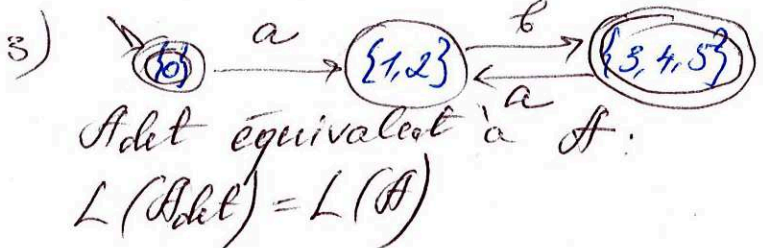 3) {0} a {1,2} b {3,4,5} a
Adet équivalent à A.
L(Adet) = L(A)